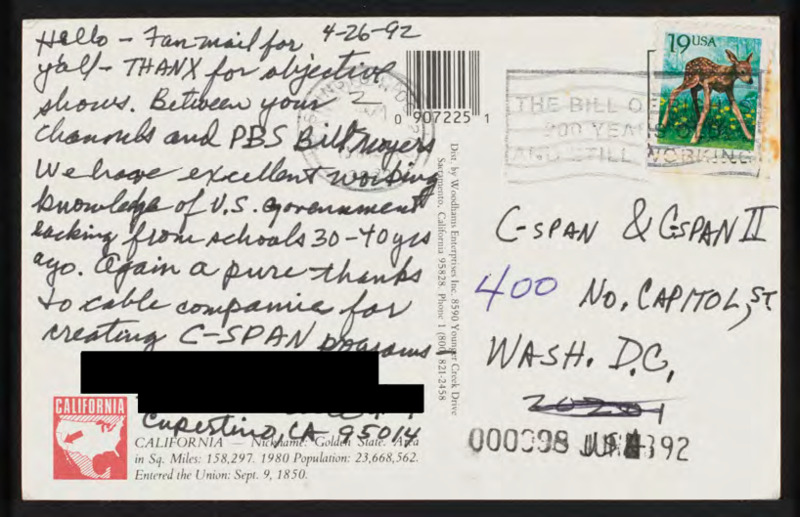 Hello - Fan mail for 4-26-92
y'all - THANX for objective
shows. Between your 2
channels and PBS Bill Moyers
We have excellent working
knowledge of U.S. government
lacking from schools 30-40 yrs
ago. Again a pure thanks
to cable companies for
creating C-SPAN programs
Cupertino, CA 95014
CALIFORNIA
CALIFORNIA — Nickname: Golden State. Area
in Sq. Miles: 158,297. 1980 Population: 23,668,562.
Entered the Union: Sept. 9, 1850.
0 907225 1
Dist. by Woodhams Enterprises Inc. 8590 Younger Creek Drive
Sacramento, California 95828. Phone 1 (800) 821-2458
19 USA
THE BILL OF
200 YEARS
AND STILL WORKING
C-SPAN & CSPAN II
400 No. CAPITOL, ST.
WASH. D.C.
000998 JUN 92